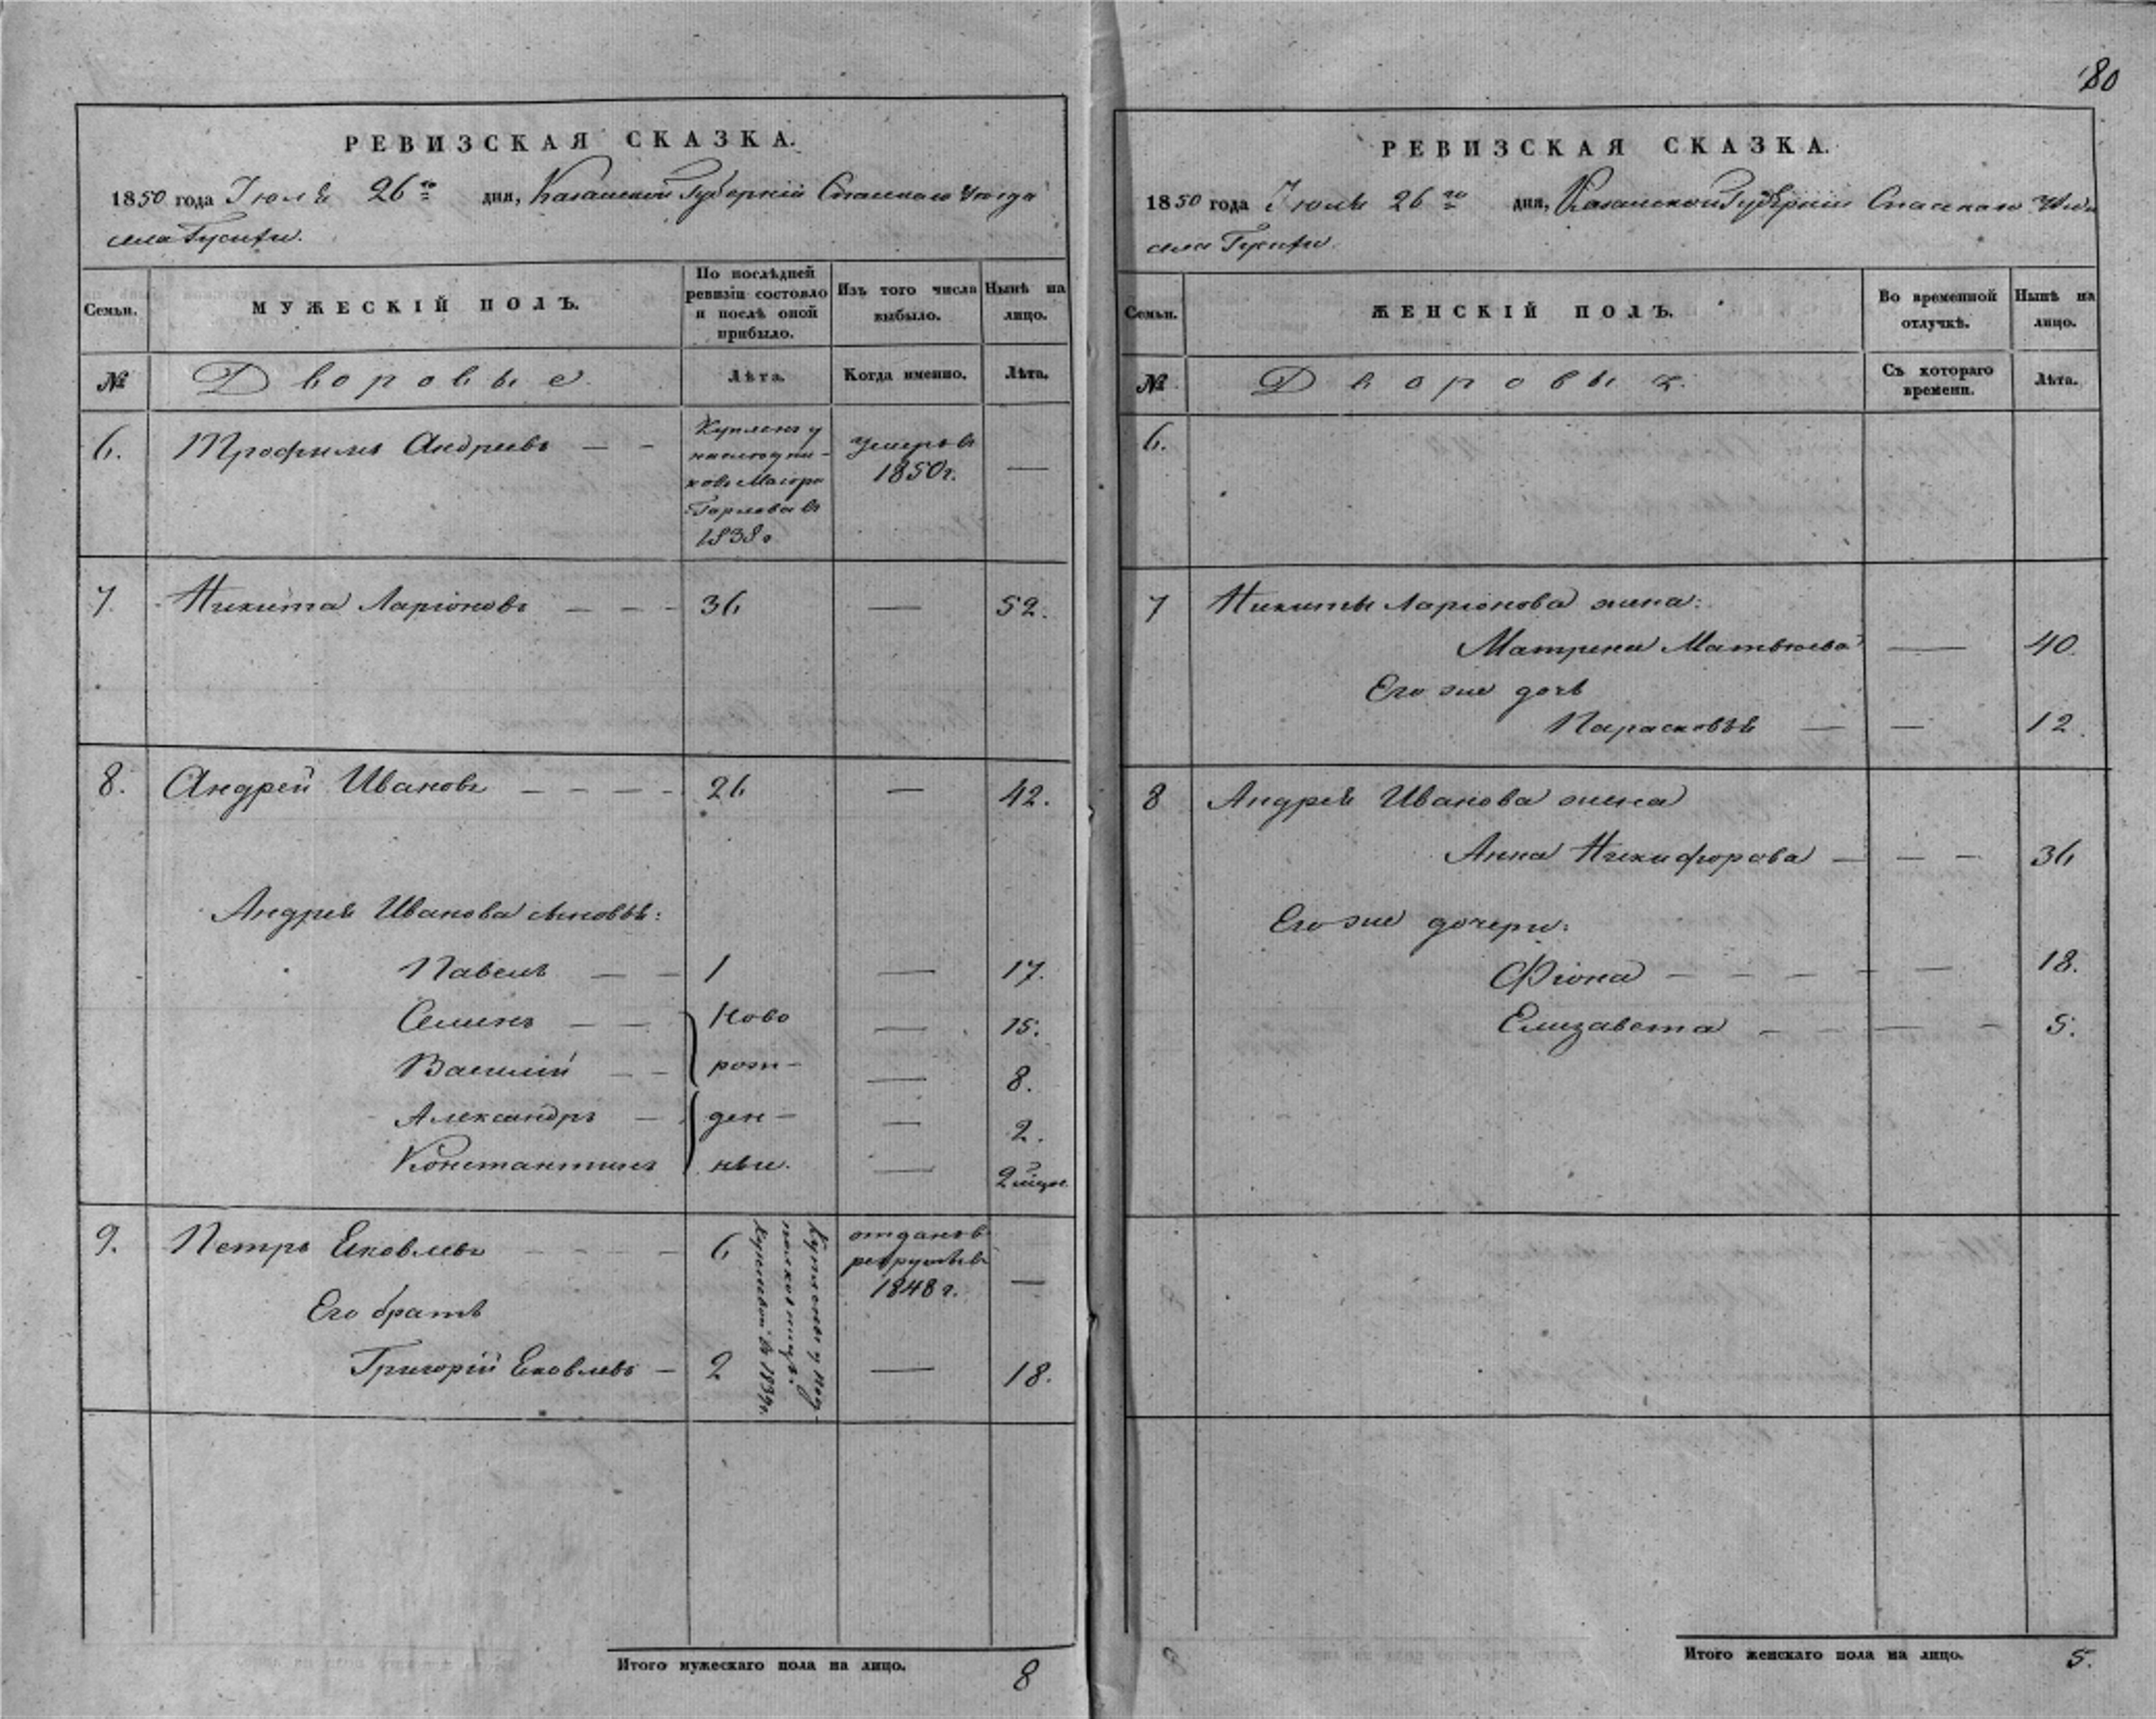 80
РЕВИЗСКАЯ СКАЗКА.
1850 года Июля 26го дня, Казанской Губерніи Спаскаго Уезда
села Гусихи.
Семьи.
МУЖЕСКІЙ ПОЛЪ.
По послѣдней ревизіи состояло и послѣ оной прибыло.
Изъ того числа выбыло.
Нынѣ на лицо.
№
Дворовые.
Лѣта.
Когда именно.
Лѣта.
6.
Трофимъ Андреевъ — —
Купленъ у
наследни-
ковъ Маіора
въ
1838г
Умеръ въ
1850г.
—
7.
Никита Ларіоновъ — — —
36
—
52.
8.
Андрей Ивановъ — — — —
26
—
42.
Андрея Иванова сыновья:
Павелъ — —
1
—
17.
Семенъ — —
Ново
—
15.
Василій — —
рож-
—
8.
Александръ —
ден-
—
2.
Константинъ
ные.
—
2 мѣся
9.
Петръ Яковлевъ — — — —
6
Куплены у Под-
полковницы
въ 1839г.
отданъ въ
рекруты въ
1848г.
—
Его братъ
Григорій Яковлевъ —
2
—
18.
Итого мужескаго пола на лицо.
8
РЕВИЗСКАЯ СКАЗКА.
1850 года Июля 26го дня, Казанской Губерніи Спаскаго Уезда
села Гусихи.
Семьи.
ЖЕНСКІЙ ПОЛЪ.
Во временной отлучкѣ.
Нынѣ на лицо.
№
Дворовыя.
Съ котораго времени.
Лѣта.
6.
7
Никиты Ларіонова жена:
Матрена Матвѣева — 40.
Его же дочь
Парасковья — — 12.
8
Андрея Иванова жена
Анна Никифорова — — — 36
Его же дочери:
Фіона — — — — — 18.
Елизавета — — — — 5.
Итого женскаго пола на лицо.
5.